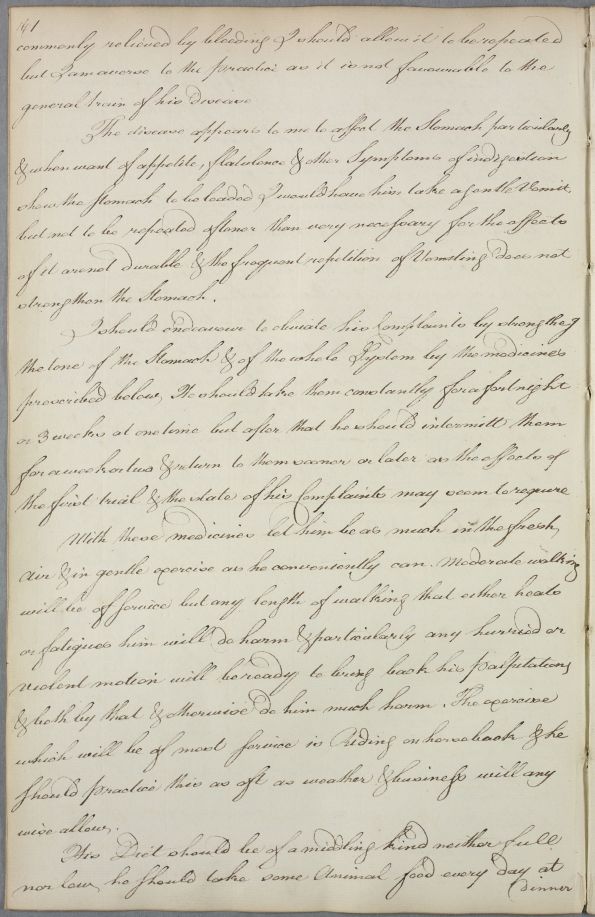 191
commonly relieved by bleeding I should allow it to be repeated
but I am averse to the practice as it is not favourable to the
general train of his disease
The disease appears to me to affect the Stomach particularly
& when want of appetite, flatulence & other Symptoms of indigestion
shew the stomach to be loaded I would have him take a gentle Vomit,
but not to be repeated oftener than very necessary for the effects
of it are not durable & the frequent repetition of Vomiting does not
strengthen the Stomach.
I should endeavour to obviate his Complaints by strengtheg
the tone of the Stomach & of the whole System by the medicines
prescribed below, He should take them constantly for a fortnight
or 3 weeks at one time but after that he should intermitt them
for a week or two & return to them sooner or later as the effects of
the first trial & the state of his Complaints may seem to require
With these medicines let him be as much in the fresh
air & in gentle exercise as he conveniently can. Moderate walking
will be of service but any length of walking that either heats
or fatigues him will do harm & particularly any hurried or
violent motion will be ready to bring back his palpitations
& both by that & otherwise do him much harm. The exercise
which will be of most service is Riding on horseback & he
should practice this as oft as weather & business will any
wise allow.
His Diet should be of a middling kind neither full
nor low, he should take some Animal food every day at
Dinner